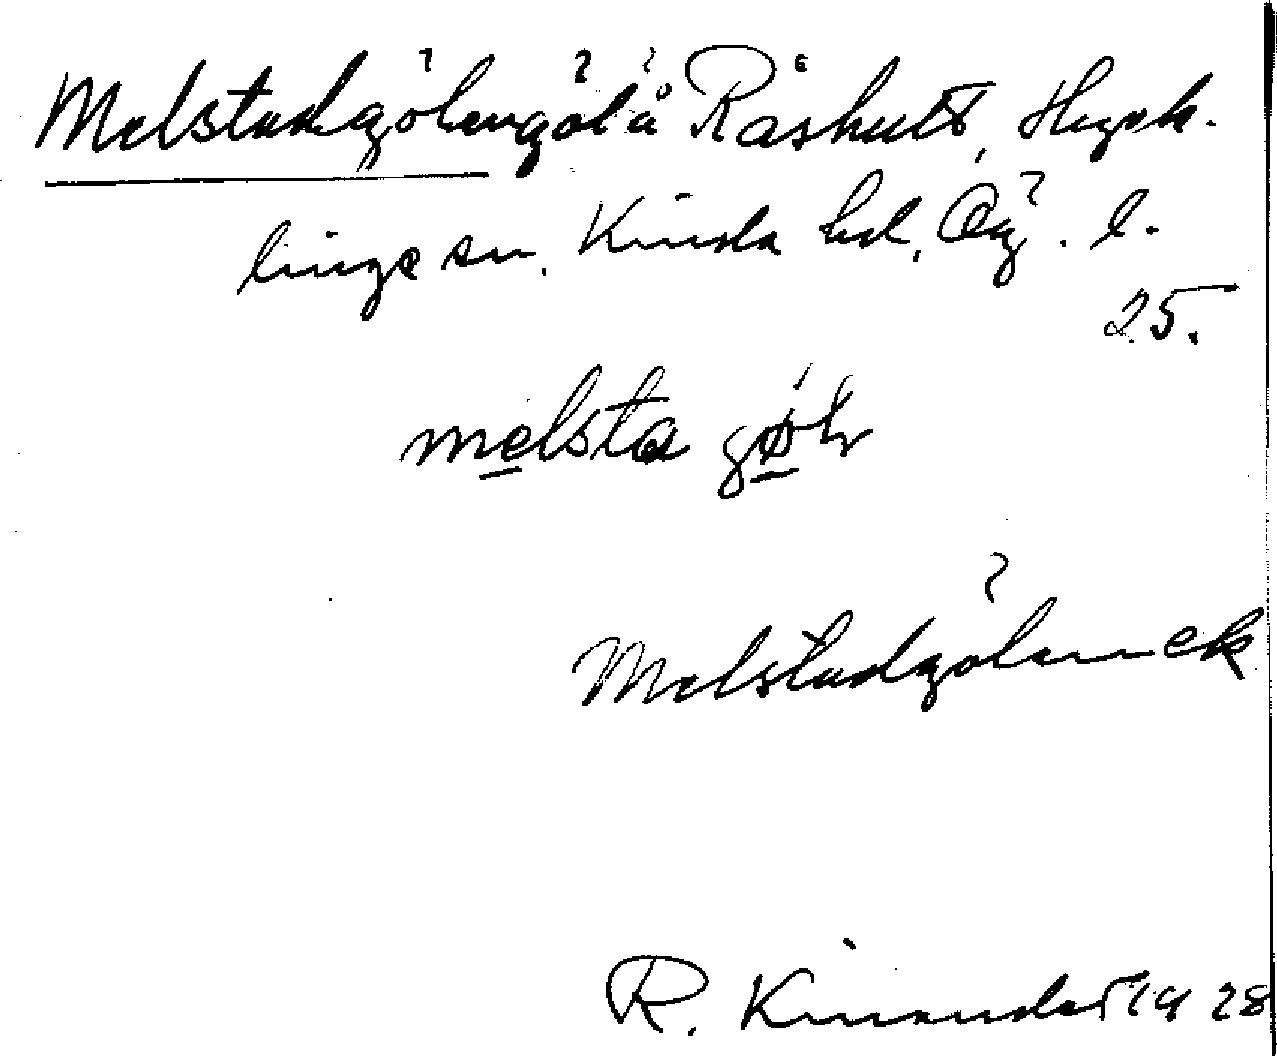 Melstadgölen göl å Råshult, Hyck-
linge sn. Kinda hd, Ög. l.
25.
melsta gøln
Melstadgölen ek
R. Kinander 1928